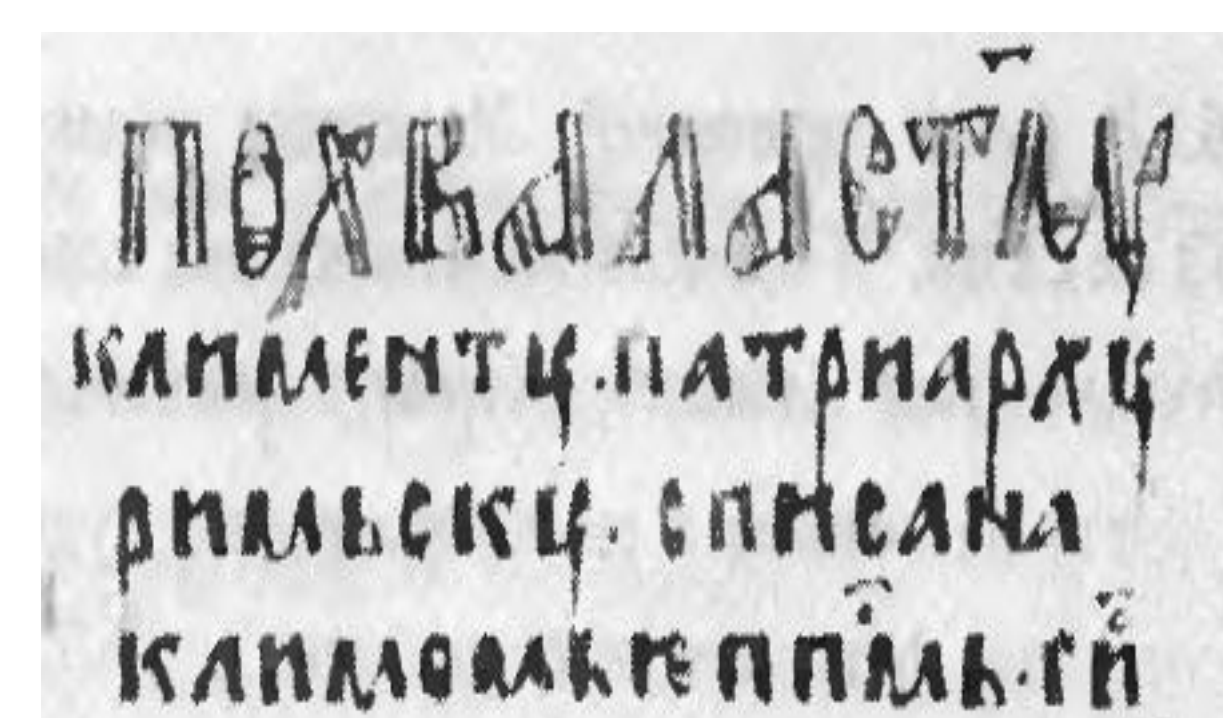 ПОХВАЛАСТ҃МУ
климентy·патриархy
римьскy· списана
климомьѥпп҃мь·гиⷭ҇